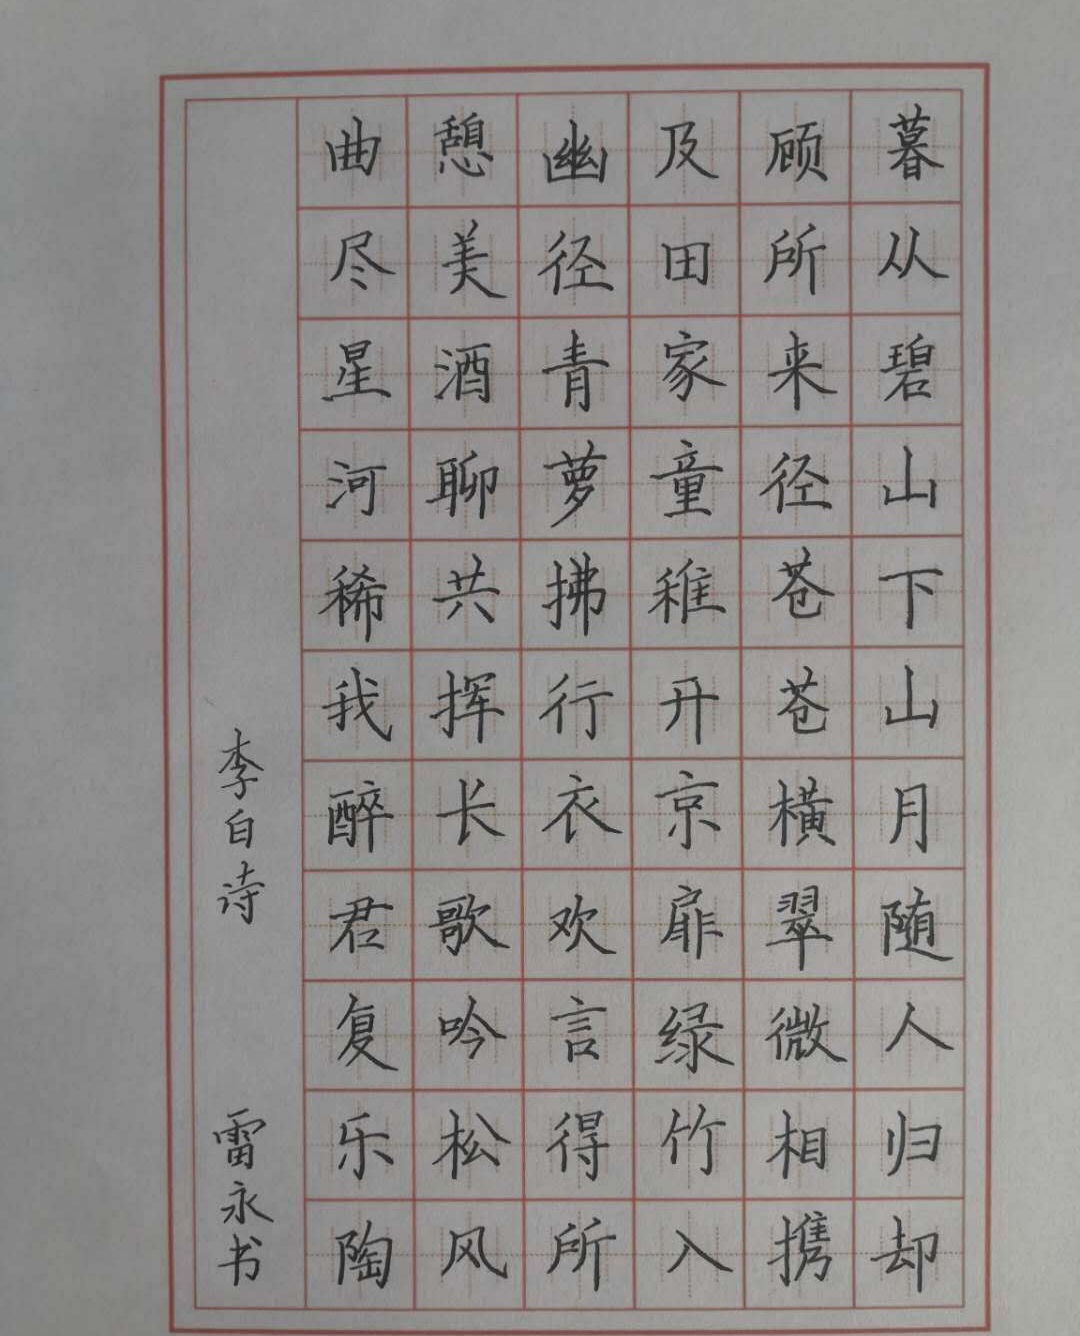 暮从碧山下山月随人归却
顾所来径苍苍横翠微相携
及田家童稚开京扉绿竹入
幽径青萝拂行衣欢言得所
憩美酒聊共挥长歌吟松风
曲尽星河稀我醉君复乐陶
李白诗 雷永书